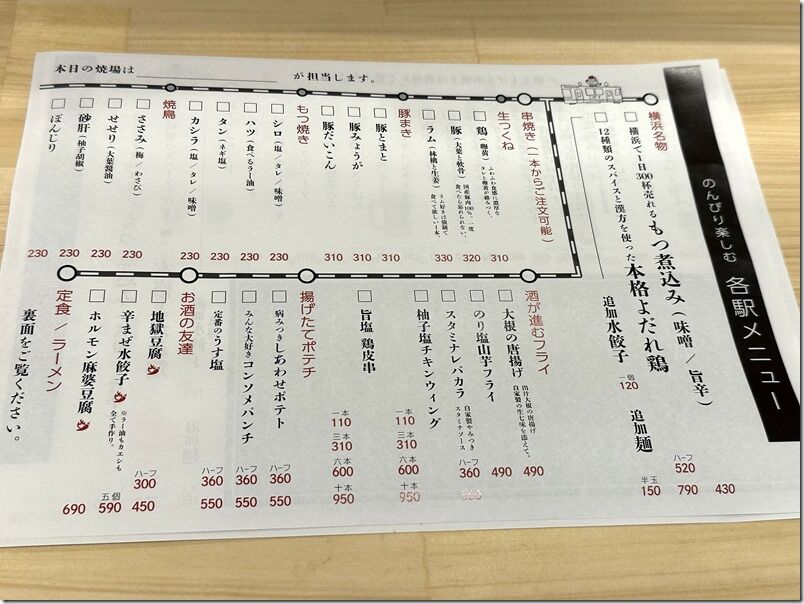 のんびり楽しむ 各駅メニュー
横浜名物
横浜で1日300杯売れるもつ煮込み(味噌/旨辛) 430
12種類のスパイスと漢方を使った本格よだれ鶏 ハーフ 520 790
追加水餃子 一個 120 追加麺 半玉 150
本日の焼場は が担当します。
串焼き(一本からご注文可能)
生つくね
鶏(卵黄) ふわふわ食感に濃厚な タレと卵黄が絡みつく。 310
豚(大葉と軟骨) 国産豚肉100%、一度 食べたら忘れられない。 320
ラム(林檎と生姜) ラム好きは強制で 食べて欲しい一本。 330
豚まき
豚とまと 310
豚みょうが 310
豚だいこん 310
もつ焼き
シロ(塩/タレ/味噌) 230
ハツ(食べるラー油) 230
タン(ネギ塩) 230
カシラ(塩/タレ/味噌) 230
焼鳥
ささみ(梅/わさび) 230
せせり(大葉醤油) 230
砂肝(柚子胡椒) 230
ぼんじり 230
酒が進むフライ
大根の唐揚げ 出汁大根の唐揚げ 自家製の生七味を添えて。 490
のり塩山芋フライ 490
スタミナレバカラ 自家製やみつき スタミナソース ハーフ 360
柚子塩チキンウィング 一本 110 三本 310 六本 600 十本 950
旨塩 鶏皮串 一本 110 三本 310 六本 600 十本 950
揚げたてポテチ
病みつきしあわせポテト ハーフ 360 550
みんな大好きコンソメパンチ ハーフ 360 550
定番のうす塩 ハーフ 360 550
お酒の友達
地獄豆腐 ハーフ 300 450
辛まぜ水餃子 ※ラー油もカエシも 全て手作り。 五個 590
ホルモン麻婆豆腐 690
定食/ラーメン
裏面をご覧ください。